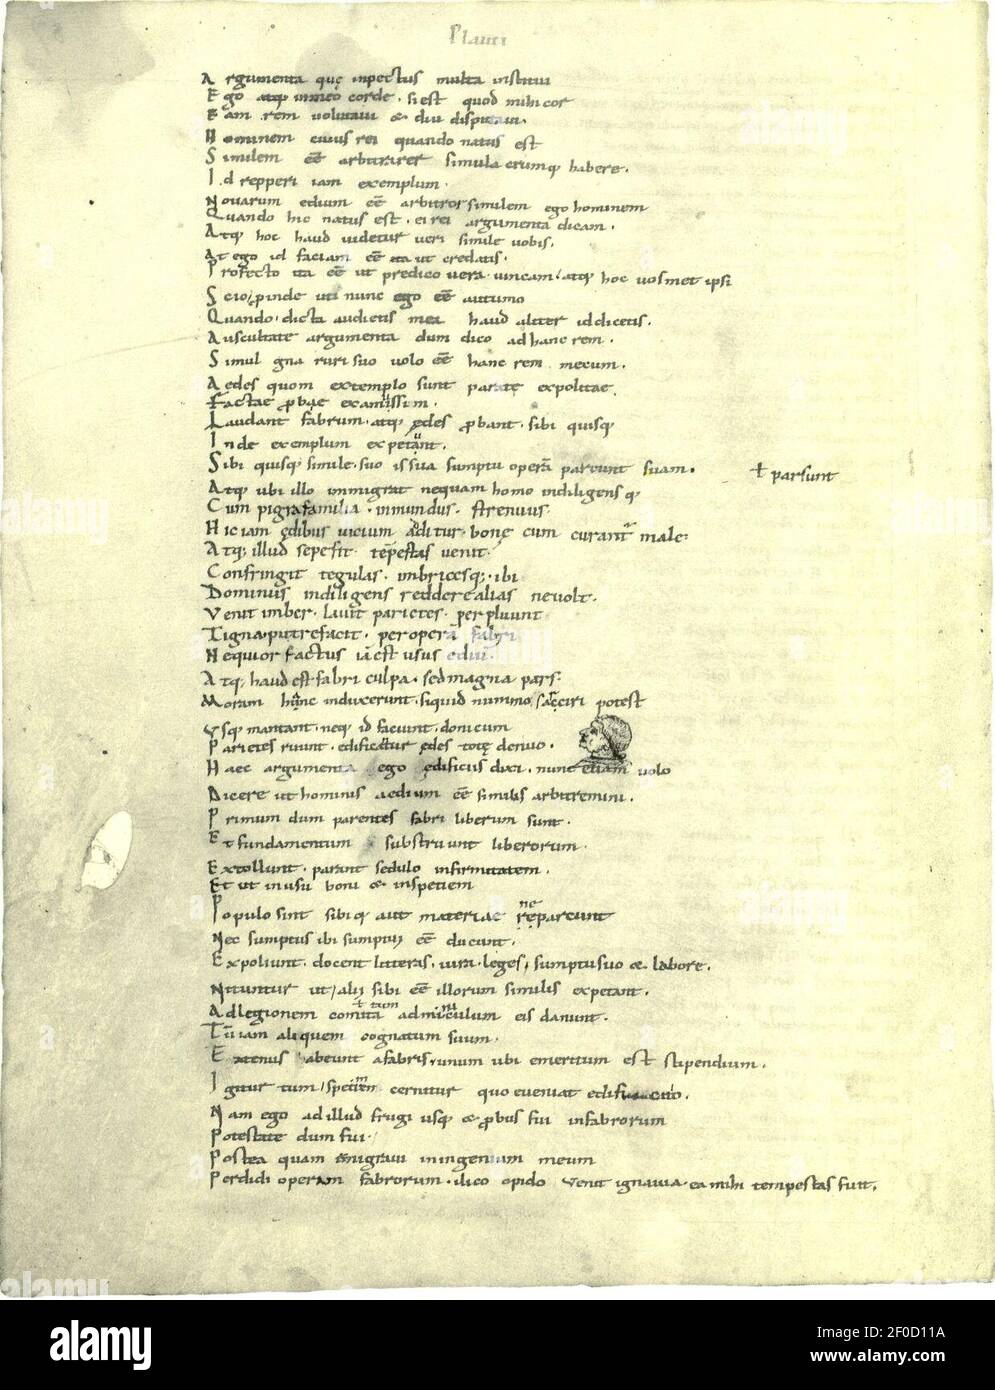 Plauti
Argumenta quę inpectus multa institui
Ego atq; inmeo corde · si est quod mihi cor
Eam rem volutavi & diu disputavi ·
Hominem cuius rei quando natus est
Similem eē arbitrarer simulacrumq; habere ·
Id repperi iam exemplum ·
Novarum edium eē arbitror similem ego hominem
Quando hic natus est · ei rei argumenta dicam ·
Atq; hoc haud videtur veri simile vobis ·
At ego id faciam eē ita ut credatis ·
Profecto ita eē ut predico vera vincam / atq; hoc vosmet ipsi
Scio, pinde uti nunc ego eē autumo
Quando · dicta audietis mea haud aliter id dicetis ·
Auscultate argumenta dum dico ad hanc rem ·
Simul gna ruri suo volo eē hanc rem mecum ·
Aedes quom extemplo sunt parate expolitae,
Factae pbąe examissim ·
Laudant fabrum · atq; ędes pbant · sibi quisq;
Inde exemplum expetunt ·
Sibi quisq; simile · suo issua sumptu operā pareunt suam ·
ł parsunt
Atq; ubi illo inmigrat nequam homo indiligensq;
Cum pigra familia · inmundus · strenuus
Hic iam ędibus vicium additur · bonę cum curant male:
Atq; illud sepe fit · tēpestas venit ·
Confringit tegulas · imbricesq; · ibi
Dominus indiligens reddere alias nevolt ·
Venit imber · lavit parietes · perpluunt
Tigna · putrefacit · per operā fabri
Nequior factus iā est usus ediū ·
Atq; haud est fabri culpa · sed magna pars:
Moram hanc induxerunt · siquid nummo sarciri potest
Usq; mantant · neq; id faciunt · donicum
Parietes ruunt · edificatur ędes totę denuo ·
Haec argumenta ego ędificiis dixi · nunc etiam volo
Dicere ut hominis aedium eē similis arbitremini ·
Primum dum parentes fabri liberum sunt ·
Et fundamentum substruunt liberorum ·
Extollunt · parant sedulo infirmitatem ·
Et ut in usu boni & inspetiem
Populo sint sibiq; aut materiae ne reparcunt
Nec sumptus ibi sumptui eē ducunt ·
Expoliunt · docent litteras, iura · leges, sumptu suo & labore ·
Nituntur ut / alii sibi eē illorum similis expetant ·
Ad legionem comita ł tum adminiculum eis danunt ·
Tū iam aliquem cognatum suum ·
Extenus abeunt a fabris, unum ubi emeritum est stipendium ·
Igitur tum / specimen cernitur quo eveniat edificatio ·
Nam ego ad illud frugi usq; & pbus fui in fabrorum
Potestate dum fui ·
Postea quam inmigravi in ingenium meum
Perdidi operam fabrorum · ilico opido Venit ignavia · ea mihi tempestas fuit ·
alamy
alamy
Image ID: 2F0D11A
www.alamy.com